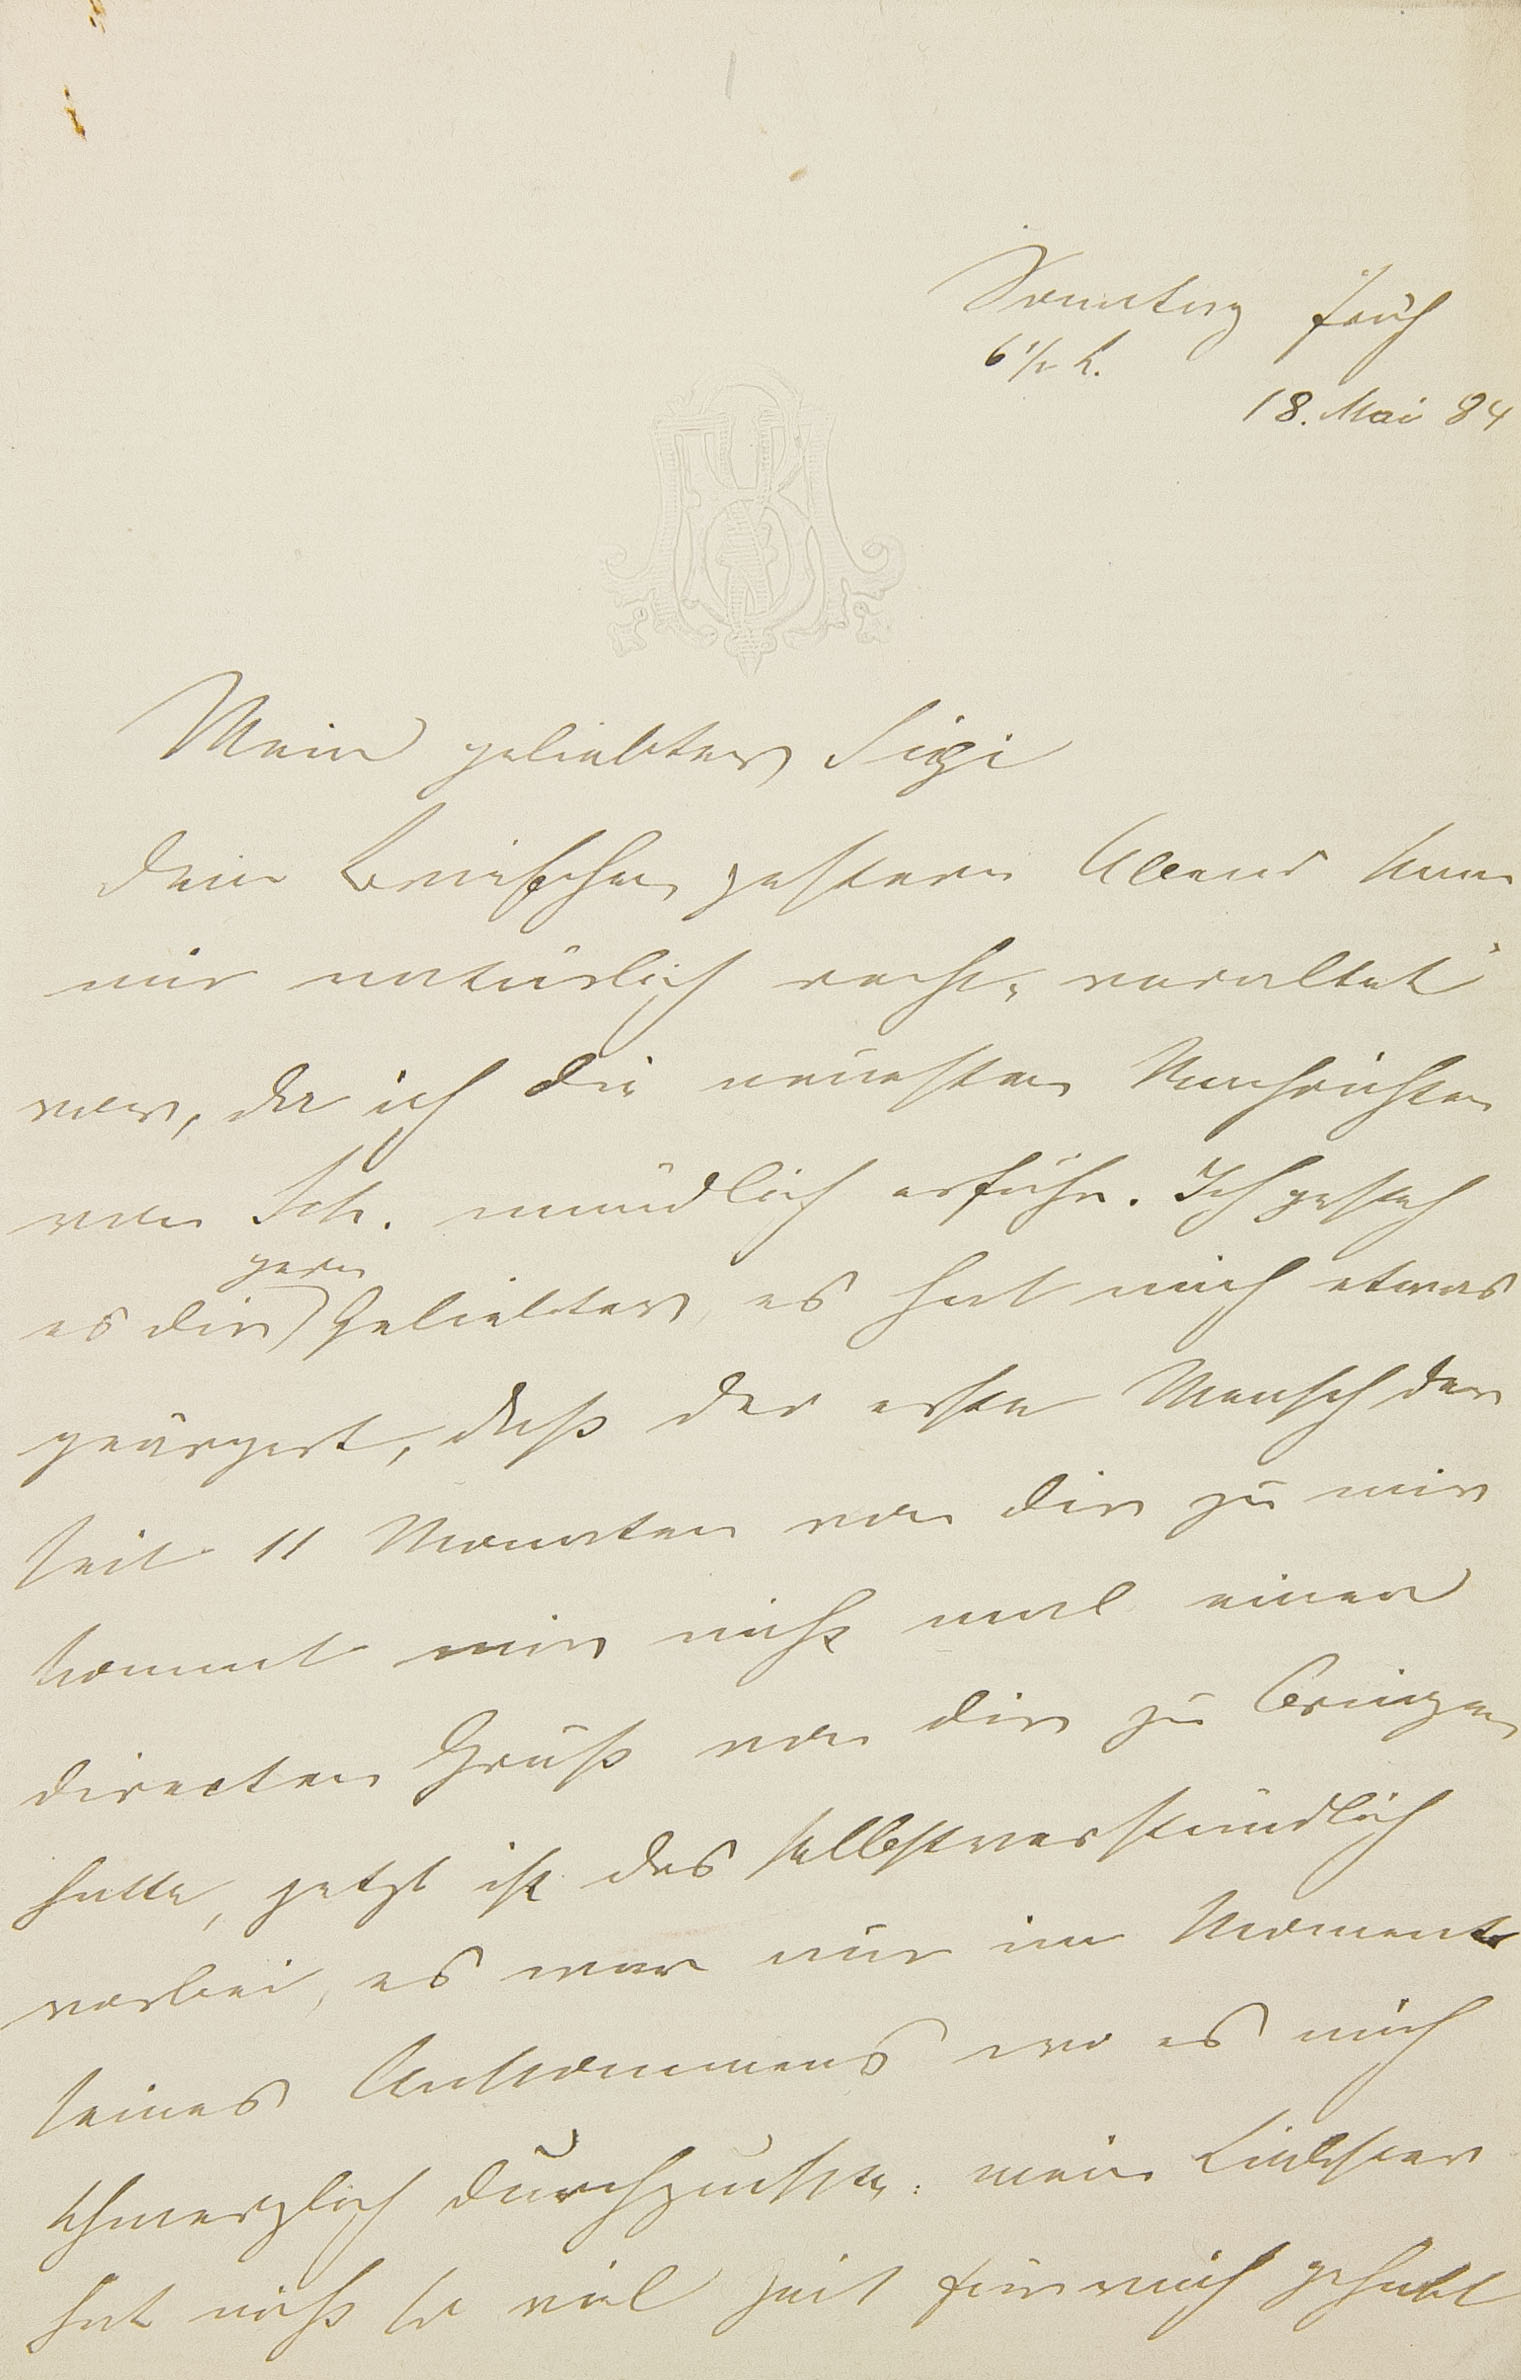 Sonntag früh
6 1/2 h.
18. Mai 84
Mein geliebter Sigi
dein Briefchen gestern Abend kam
mir natürlich recht „veraltet“
vor, da ich die neuesten Nachrichten
von Sch. mündlich erfuhr. Ich gesteh
gern
es dir Geliebter, es hat mich etwas
geärgert, daß der erste Mensch der
seit 11 Monaten von dir zu mir
kommt mir nicht mal einen
directen Gruß von dir zu bringen
hatte, jetzt ist das selbstverständlich
vorbei, es war nur im Moment
seines Ankommens wo es mich
schmerzlich durchzuckte: mein Liebster
hat nicht so viel Zeit für mich gehabt